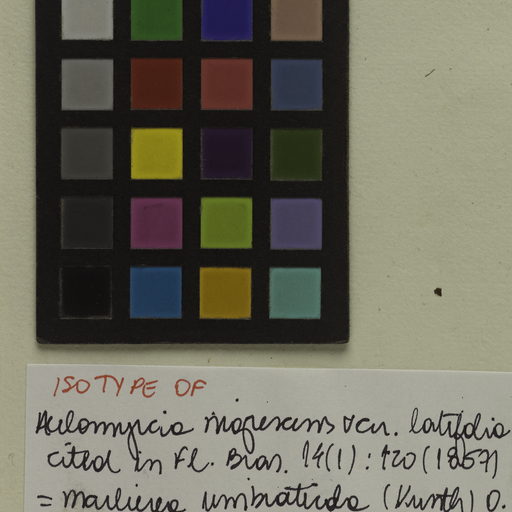 ISOTYPE OF
Aulomyrcia nigrescens var. latifolia
cited in Fl. Bras. 14(1): 120 (1857)
= Marlierea umbraticola (Kunth) O.